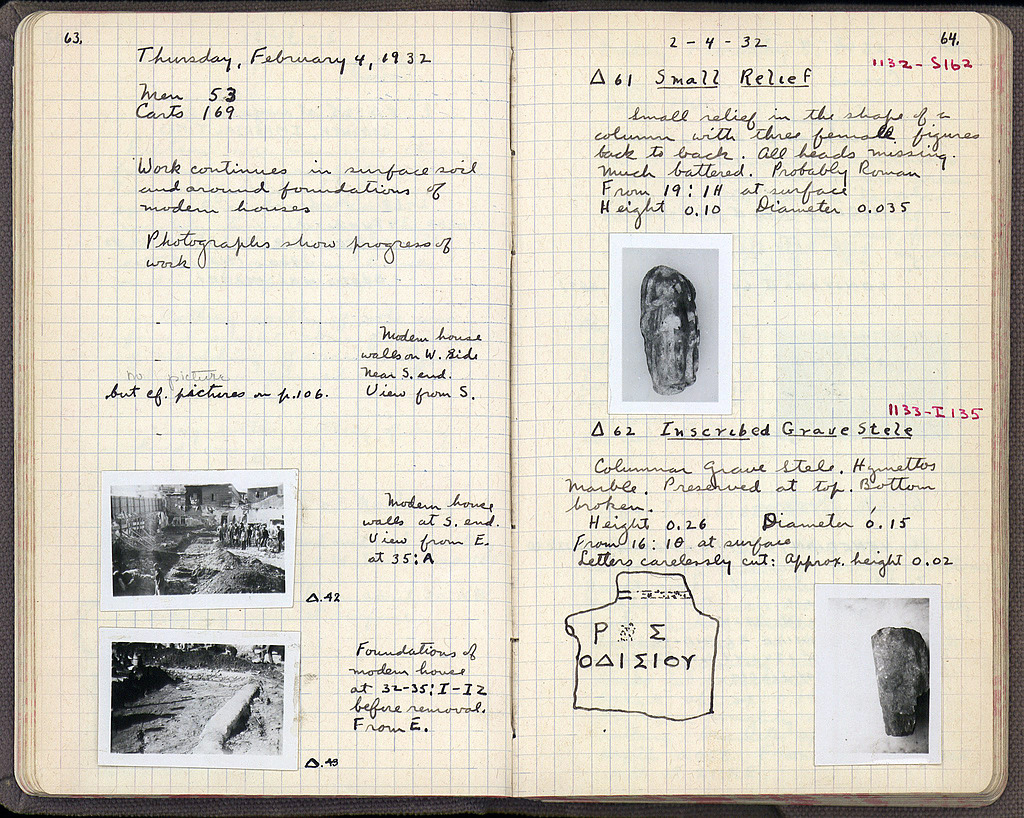 63.
Thursday, February 4, 1932
Men 53
Carts 169
Work continues in surface soil
and around foundations of
modern houses
Photographs show progress of
work
Modern house
walls on W. Side
Near S. end.
View from S.
no picture
but cf. pictures on p. 106.
Modern house
walls at S. end.
View from E.
at 35:A
Δ.42
Foundations of
modern house
at 32-35:I-IZ
before removal.
From E.
Δ.43
2-4-32
64.
1132-S162
Δ 61 Small Relief
Small relief in the shape of a
column with three female figures
back to back. All heads missing.
Much battered. Probably Roman
From 19:IH at surface
Height 0.10 Diameter 0.035
1133-I 135
Δ 62 Inscribed Grave Stele
Columnar Grave Stele. Hymettos
Marble. Preserved at top. Bottom
broken.
Height 0.26 Diameter 0.15
From 16:IΘ at surface
Letters carelessly cut: Approx. height 0.02
Ρ Σ
ΟΔΙΣΙΟΥ